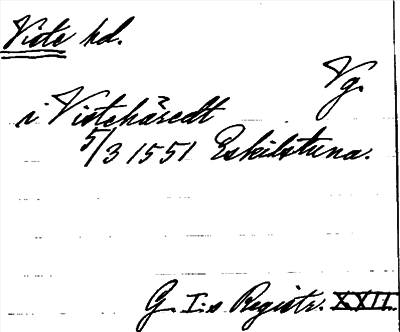 Viste hd.
Vg.
i Vistehäredt
5/3 1551 Eskilstuna.
G. I:s Registr. XXII.